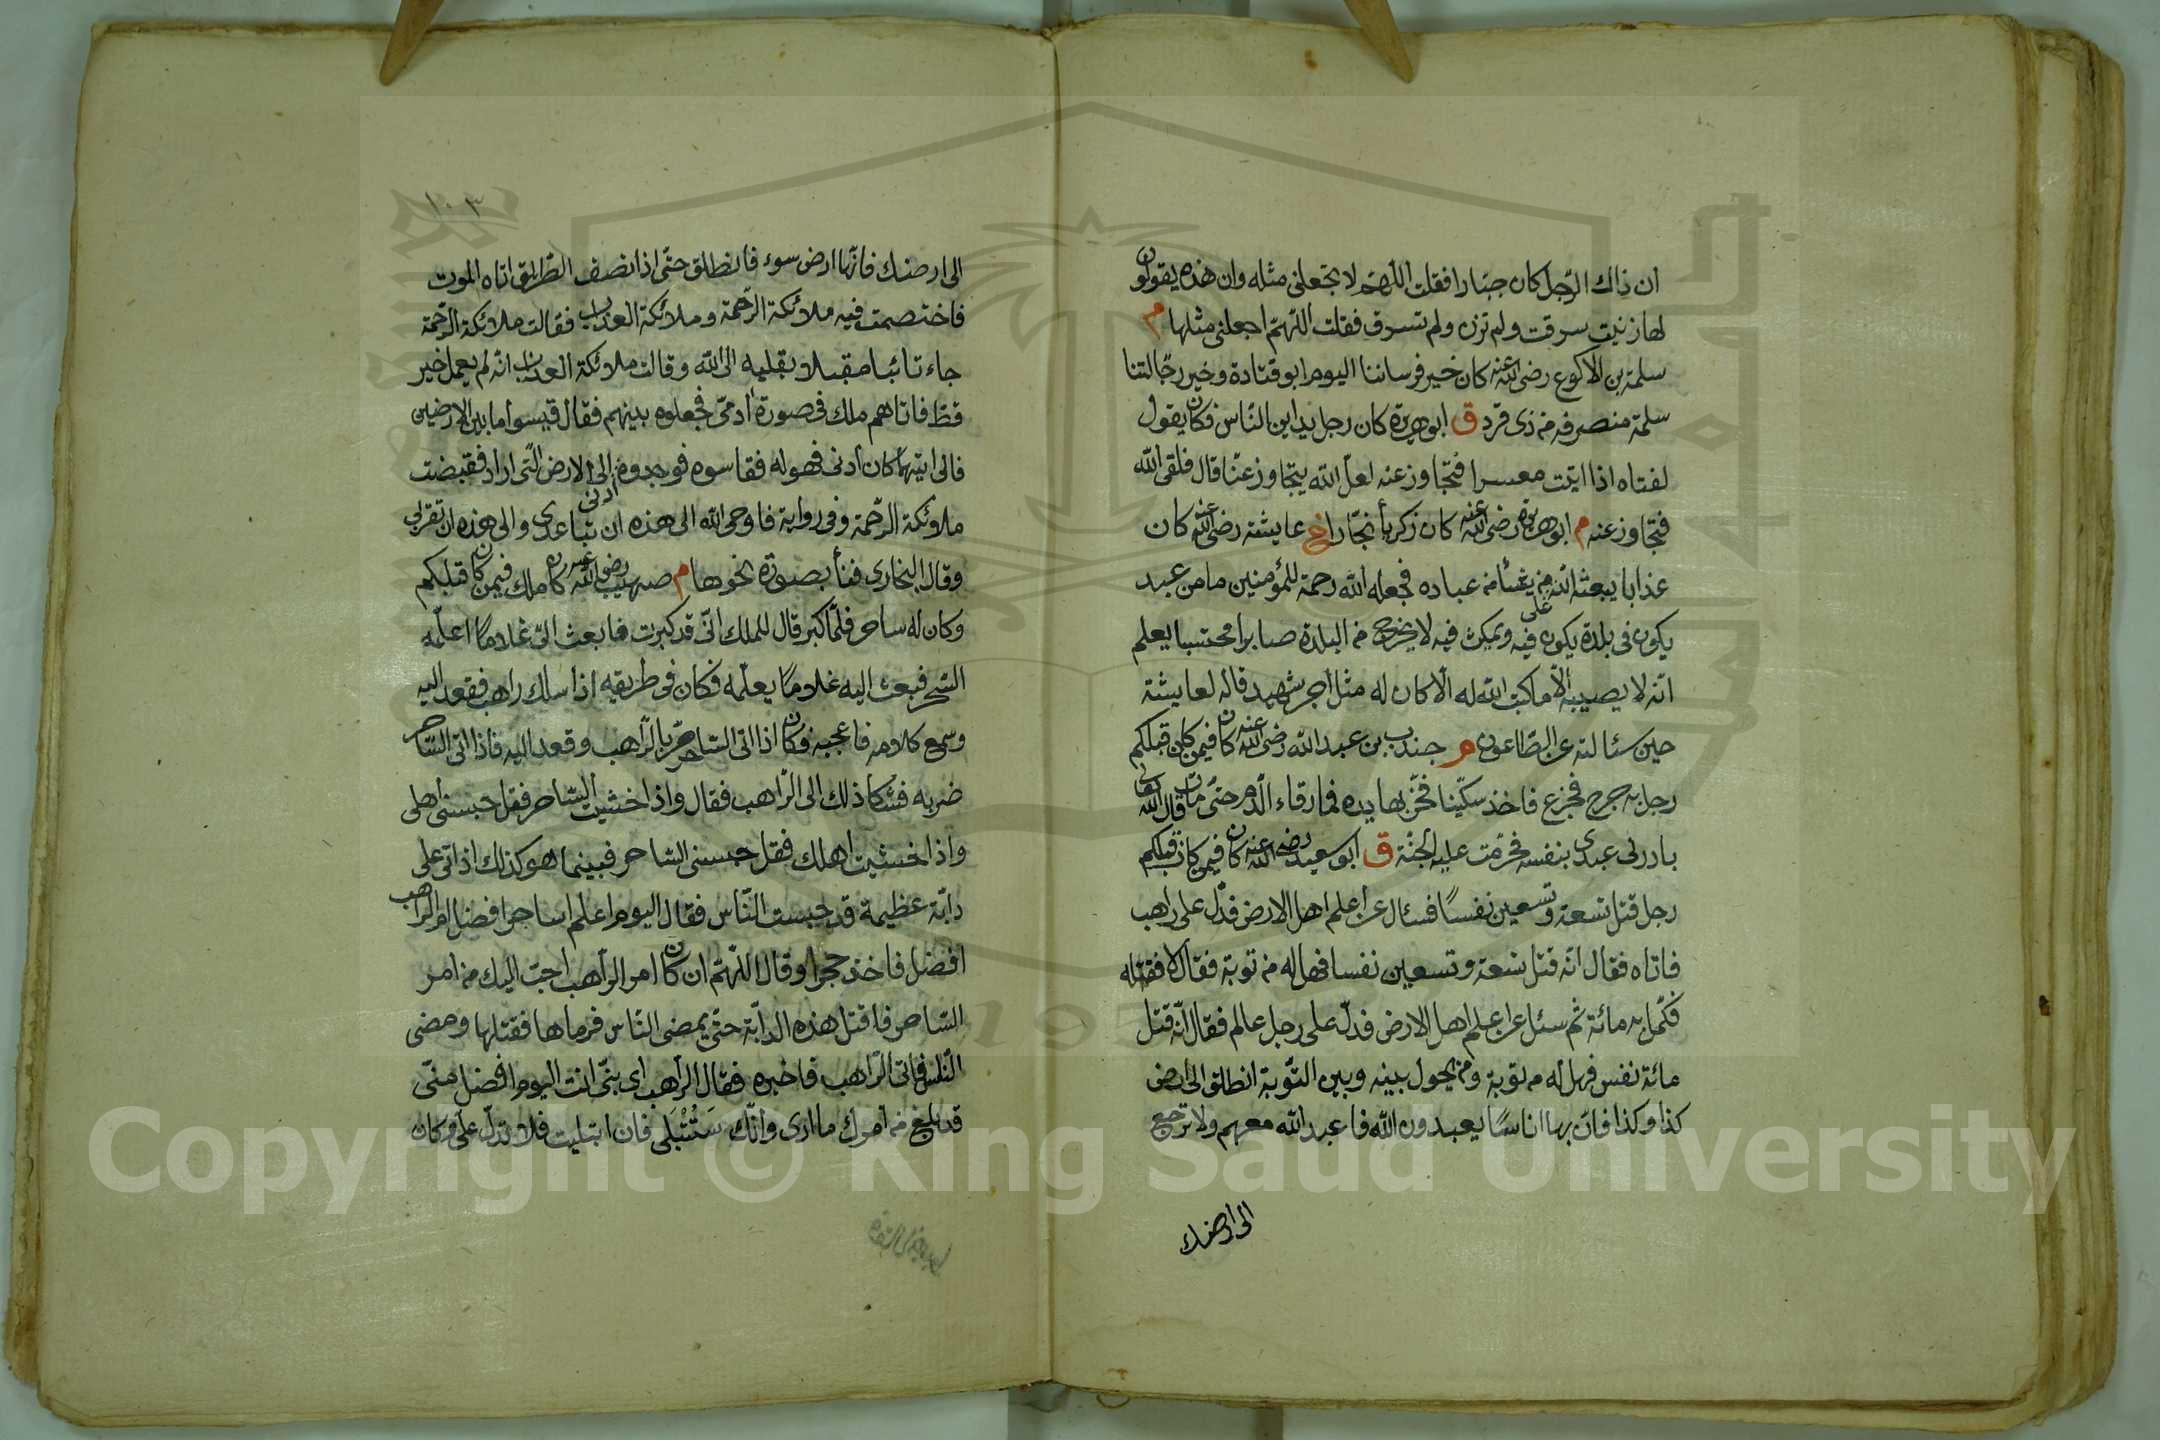 ان ذاك الرّجل كان جبّارا فقلت اللّهمّ لا تجعلنى مثله وان هذه يقولون
لها زنيت سرقت ولم تزن ولم تسرق فقلت اللّهمّ اجعلنى مثلها م
سلمة بن الاكوع رضى الله عنه كان خير فرساننا اليوم ابو قتادة وخير رجّالتنا
سلمة منصرفه من ذى قرد ق ابو هريرة كان رجل يداين النّاس فكان يقول
لفتاه اذا اتيت معسرا فتجاوز عنه لعلّ الله يتجاوز عنّا قال فلقى الله
فتجاوز عنه م ابو هريرة رضى الله عنه كان زكريا نجّارا خ عايشة رضى الله عنها كان
عذابا يبعثه الله على من يشأ من عباده فجعله الله رحمة للمؤمنين ما من عبد
يكون فى بلدة يكون فيه ويمكث فيه لا يخرج من البلدة صابرا محتسبا يعلم
انّه لا يصيبه الّا ما كتب الله له الّا كان له مثل اجر شهيد قاله لعايشة
حين سئالته عن الطّاعون م جندب بن عبد الله رضى الله عنه كان فيمن كان قبلكم
رجل به جرح فجزع فاخذ سكّينا فحزّ بها يده فما رقاء الّدم حتّى مات قال الله تعالى
بادرنى عبدى بنفسه فحرّمت عليه الجنّة ق ابو سعيد رضى الله عنه كان فيمن كان قبلكم
رجل قتل تسعة وتسعين نفسًا فسئال عن اعلم اهل الارض فدلّ على راهب
فاتاه فقال انّه قتل تسعة وتسعين نفسا فهل له من توبة فقال لا فقتله
فكمّل به مائة ثم سئل عن اعلم اهل الارض فدلّ على رجل عالم فقال انّه قتل
مائة نفس فهل له من توبة ومن يحول بينه وبين التّوبة انطلق الى ارض
كذا وكذا فانّ بها اناسًا يعبدون الله فاعبد الله معهم ولا ترجع
الى ارضك
١٠٣
الى ارضك فانّها ارض سوء فانطلق حتّى اذا نصف الطّريق اتاه الموت
فاختصمت فيه ملائكة الرّحمة وملائكة العذاب فقالت ملائكة الرّحمة
جاء تائبا مقبلا بقلبه الى الله وقالت ملائكة العذاب انّه لم يعمل خير
قطّ فاتاهم ملك فى صورة آدمىّ فجعلوه بينهم فقال قيسوا ما بين الارضين
فالى ايّتهما كان أدنى فهو له فقاسوه فوجدوه أدنى الى الارض الّتى اراد فقبضت
ملائكة الرّحمة وفى رواية فاوحى الله الى هذه ان تباعدى والى هذه ان تقربى
وقال البخارى فنأ بصورة نحوها م صهيب رضى الله عنه كان ملك فيمن كان قبلكم
وكان له ساحر فلمّا كبر قال للملك انّى قد كبرت فابعث الىّ غلامًا اعلّمه
السّحر فبعث اليه غلامًا يعلّمه فكان فى طريقه اذا سلك راهب فقعد اليه
وسمع كلامه فاعجبه فكان اذا اتى السّاحر مرّ بالرّاهب وقعد اليه فاذا اتى السّاحر
ضربه فشكا ذلك الى الرّاهب فقال واذا خشيت السّاحر فقل حبسنى اهلى
واذا خشيت اهلك فقل حبسنى السّاحر فبينما هو كذلك اذ اتى على
دابّة عظيمة قد حبست النّاس فقال اليوم اعلم اساحر افضل ام الرّاهب
افضل فاخذ حجرا وقال اللّهمّ ان كان امر الرّاهب احبّ اليك من امر
السّاحر فاقتل هذه الدابّة حتّى يمضى النّاس فرماها فقتلها ومضى
النّاس فاتى الرّاهب فاخبره فقال الرّاهب اى بنىّ انت اليوم افضل منّى
قد بلغ من امرك ما ارى وانّك سَتُبْتَلَى فان ابتليت فلا تدلّ علىّ وكان
Copyright © King Saud University